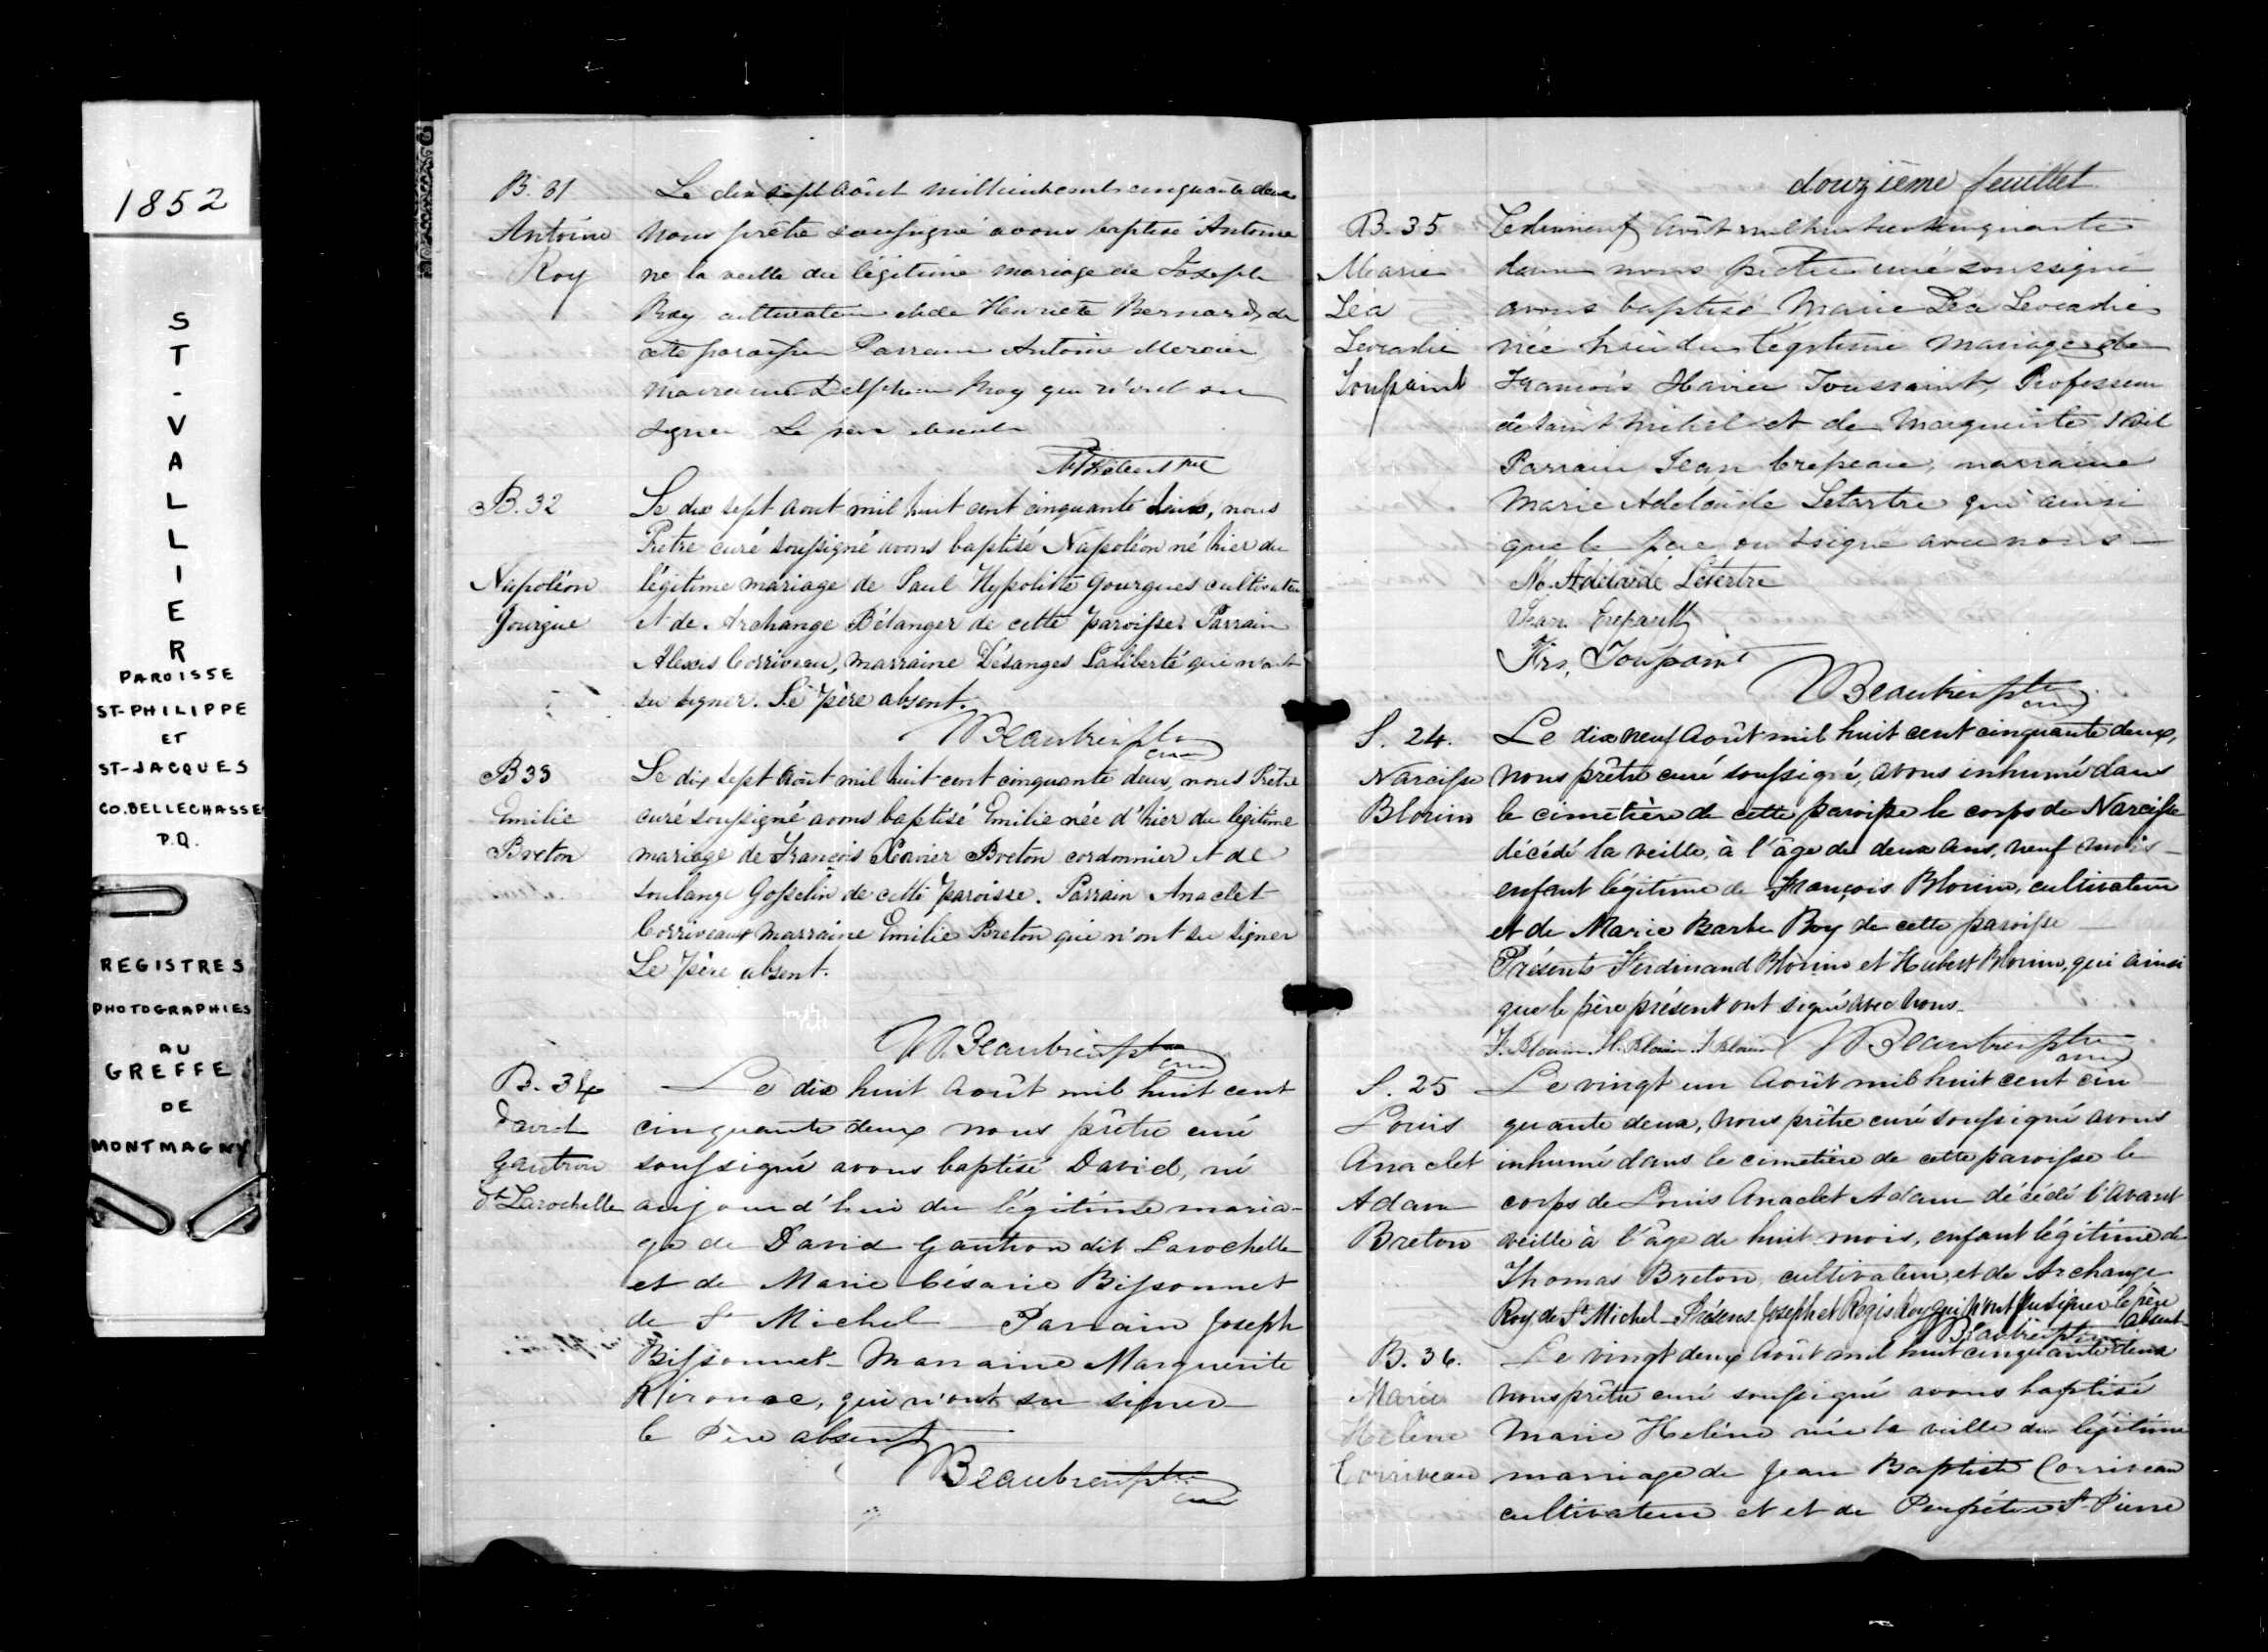 1852
ST-VALLIER
PAROISSE
ST-PHILIPPE
ET
ST-JACQUES
CO. BELLECHASSE
P.Q.
REGISTRES
PHOTOGRAPHIES
AU
GREFFE
DE
MONTMAGNY
B. 31
Antoine
Roy
Le dix sept Août mil huit cent cinquante deux
Nous prêtre soussigné avons baptisé Antoine
né la veille du légitime mariage de Joseph
Roy cultivateur et de Henriete Bernard de
cette paroisse Parrain Antoine Mercier
marraine Delphine Roy qui n'ont su
signer Le père absent
B. 32
Napoléon
Gourgue
Le dix sept aout mil huit cent cinquante deux, nous
Prêtre curé soussigné avons baptisé Napoléon né hier du
légitime mariage de Paul Hypolitte Gourgues cultivateur
et de Archange Bélanger de cette paroisse. Parrain
Alexis Corriveau, marraine Désanges Laliberté qui n'ont
su signer. Le père absent.
NBeaubien ptre
curé
B 33
Emilie
Breton
Le dix sept Août mil huit cent cinquante deux, nous Prêtre
curé soussigné avons baptisé Emilie née d'hier du legitime
mariage de François Xavier Breton cordonnier et de
Soulange Gosselin de cette paroisse. Parrain Anaclet
Corriveau, marraine Emilie Breton qui n'ont su signer
Le père absent.
NBeaubien ptre
curé
B. 34
David
Gautron
dt Larochelle
Le dix huit Août mil huit cent
cinquante deux nous prêtre curé
soussigné avons baptisé David, né
aujourd'hui du légitime maria-
ge de David Gautron dit Larochelle
et de Marie Césarie Bissonnet
de St Michel Parrain Joseph
Bissonnet - Marraine Marguerite
Kirouac, qui n'ont su signer
le Père absent
NBeaubien ptre
curé
douzième feuillet
B. 35
Marie
Léa
Leocadie
Toussaint
Le dixneuf Août mil huit cent cinquante
deux nous prêtre curé soussigné
avons baptisé Marie Léa Leocadie
née hier du légitime mariage de
François Xavier Toussaint, Professeur
de Saint Michel et de Marguerite
Parrain Jean Crepeau, marraine
Marie Adelaïde Letartre qui ainsi
que le père on signé avec nous -
M. Adélaïde Letertre
Jean Crepault
Frs. Toussaint
NBeaubien ptre
curé
S. 24.
Narcisse
Blouin
Le dix neuf Août mil huit cent cinquante deux,
nous prêtre curé soussigné, avons inhumé dans
le cimetière de cette paroisse le corps de Narcisse
décédé la veille, à l'âge de deux ans, neuf mois -
enfant légitime de François Blouin, cultivateur
et de Marie Barbe Roy de cette paroisse
Présents Ferdinand Blouin et Hubert Blouin, qui ainsi
que le père présent ont signé avec nous -
F. Blouin H. Blouin F. Blouin NBeaubien ptre
curé
S. 25
Louis
Anaclet
Adam
Breton
Le vingt un Août mil huit cent cin
quante deux, nous prêtre curé soussigné avons
inhumé dans le cimetière de cette paroisse le
corps de Louis Anaclet Adam décédé l'avant
veille à l'âge de huit mois, enfant légitime de
Thomas Breton, cultivateur, et de Archange
Roy, de St Michel - Présens Joseph et Régis Roy qui n'ont su signer le père
absent -
NBeaubien ptre
B. 36.
Marie
Helène
Corriveau
Le vingt deux Août mil huit cinquante deux
nous prêtre curé soussigné avons baptisé
Marie Helène née la veille du légitime
marriage de Jean Baptiste Corriveau
cultivateur et et de Perpétue St-Pierre